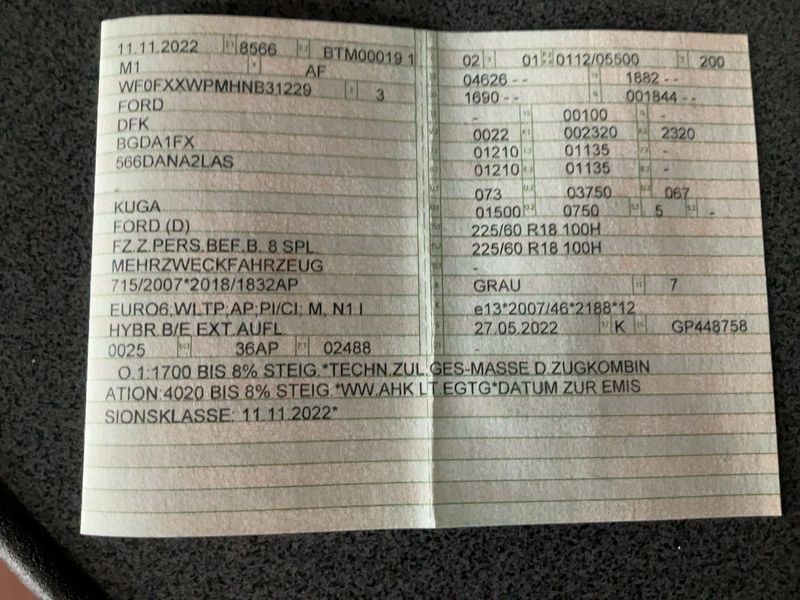 11.11.2022 8566 BTM00019 1
M1 AF
WF0FXXWPMHNB31229 3
FORD
DFK
BGDA1FX
566DANA2LAS
-
KUGA
FORD (D)
FZ.Z.PERS.BEF.B. 8 SPL.
MEHRZWECKFAHRZEUG
715/2007*2018/1832AP
EURO6;WLTP;AP;PI/CI; M, N1 I
HYBR.B/E EXT.AUFL
0025 36AP 02488
02 01 0112/05500 200
04626 - - 1882 - -
1690 - - 001844 - -
- 00100 -
0022 002320 2320
01210 01135 -
01210 01135 -
073 03750 067
01500 0750 5 -
225/60 R18 100H
225/60 R18 100H
-
GRAU 7
e13*2007/46*2188*12
27.05.2022 K GP448758
-
O.1:1700 BIS 8% STEIG.*TECHN.ZUL.GES-MASSE D.ZUGKOMBIN
ATION:4020 BIS 8% STEIG.*WW.AHK LT.EGTG*DATUM ZUR EMIS
SIONSKLASSE: 11.11.2022*